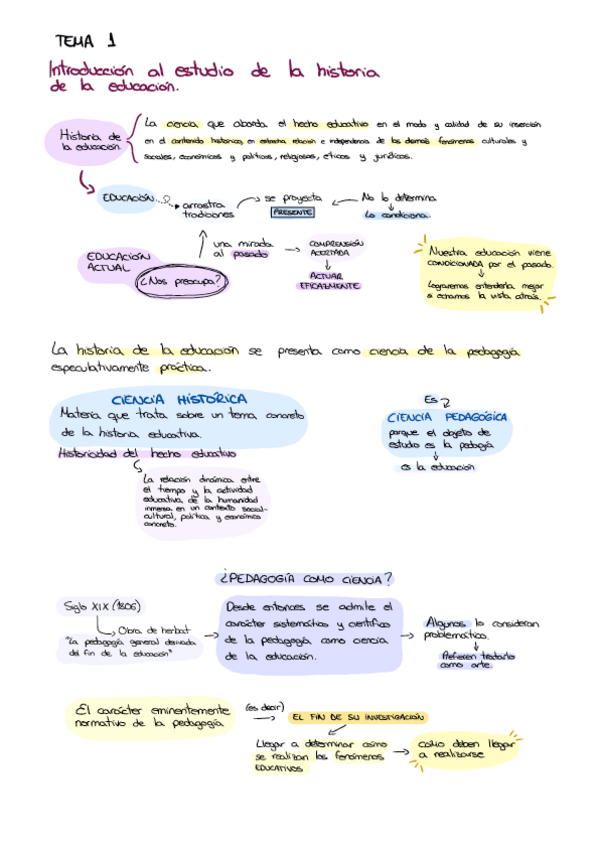 TEMA 1
Introducción al estudio de la historia
de la educación.
La ciencia que aborda el hecho educativo en el modo y calidad de su inserción
Historia de
la educación
en el contenido histórico, en estrecha relación e independencia de los demás fenómenos culturales y
sociales, económicos y políticos, religiosos, éticos y jurídicos.
EDUCACIÓN...
arrastra
tradiciones
se proyecta
PRESENTE
No lo determina
Lo condiciona.
EDUCACIÓN
ACTUAL
¿Nos preocupa?
una mirada
al pasado
COMPRENSIÓN
ACERTADA
ACTUAR
EFICAZMENTE
Nuestra educación viene
CONDICIONADA por el pasado.
Lograremos entenderla mejor
si echamos la vista atrás.
La historia de la educación se presenta como ciencia de la pedagogía
especulativamente práctica.
CIENCIA HISTÓRICA
Materia que trata sobre un tema concreto
de la historia educativa.
Historicidad del hecho educativo
La relación dinámica entre
el tiempo y la actividad
educativa de la humanidad
inmersa en un contexto social-
cultural, político y económico
concreto.
Es
CIENCIA PEDAGÓGICA
porque el objeto de
estudio es la pedagía
es la educación
¿PEDAGOGÍA COMO CIENCIA?
Siglo XIX (1806)
Obra de herbat
"La pedagogía general derivada
del fin de la educación"
Desde entonces se admite el
carácter sistemático y científico
de la pedagogía como ciencia
de la educación.
Algunos lo consideran
problemático.
Prefieren tratarlo
como arte.
El carácter eminentemente
normativo de la pedagogía
(es decir)
EL FIN DE SU INVESTIGACIÓN
Llegar a determinar cómo
se realizan los fenómenos
EDUCATIVOS
cómo deben llegar
a realizarse